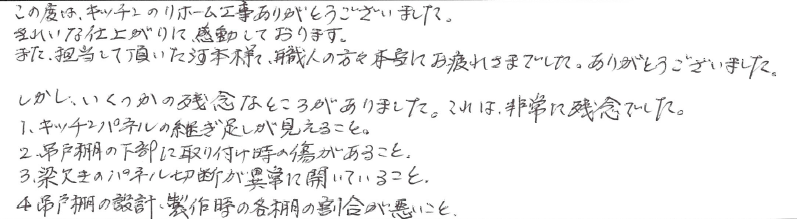 この度は、キッチンのリホーム工事ありがとうございました。
きれいな仕上がりに、感動しております。
また、担当して頂いた河本様、職人の方々本当にお疲れさまでした。ありがとうございました。
しかし、いくつかの残念なところがありました。これは、非常に残念でした。
1、キッチンパネルの継ぎ足しが見えること。
2、吊戸棚の下部に取り付け時の傷があること。
3、梁欠きのパネル切断が異常に開いていること。
4、吊戸棚の設計、製作時の各棚の割合が悪いこと。